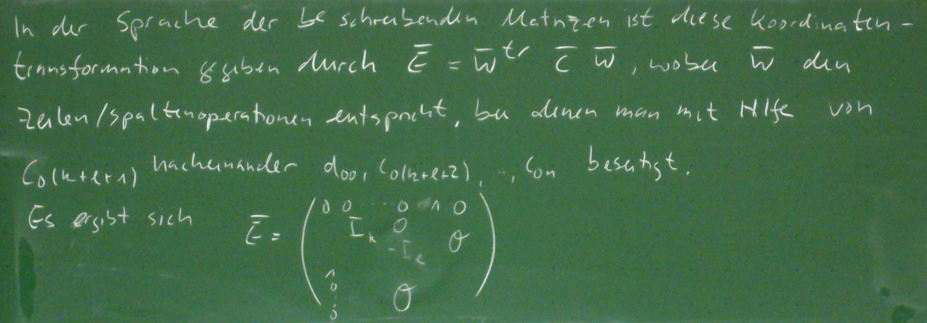 In der Sprache der beschreibenden Matrizen ist diese Koordinaten-
transformation gegeben durch Ē = W̄^tr C̄ W̄, wobei W̄ den
Zeilen/Spaltenoperationen entspricht, bei denen man mit Hilfe von
c₀₍ₖ₊ₗ₊₁₎ nacheinander d₀₀, c₀₍ₖ₊ₗ₊₂₎, .., c₀ₙ beseitigt.
Es ergibt sich Ē =
0 0 ... 0 1 0
Iₖ 0
-Iₗ 0
1
0
⋮ 0
0